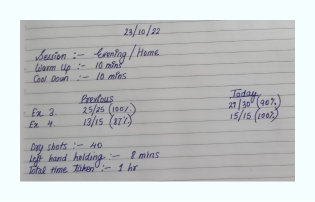 23/10/22
Session :- Evening / Home
Warm Up :- 10 mins
Cool Down :- 10 mins
Previous Today
Ex. 3. 25/25 (100%) 27/30 (90%)
Ex. 4. 13/15 (87%) 15/15 (100%)
Dry shots :- 40
Left hand holding :- 8 mins
Total time Taken :- 1 hr